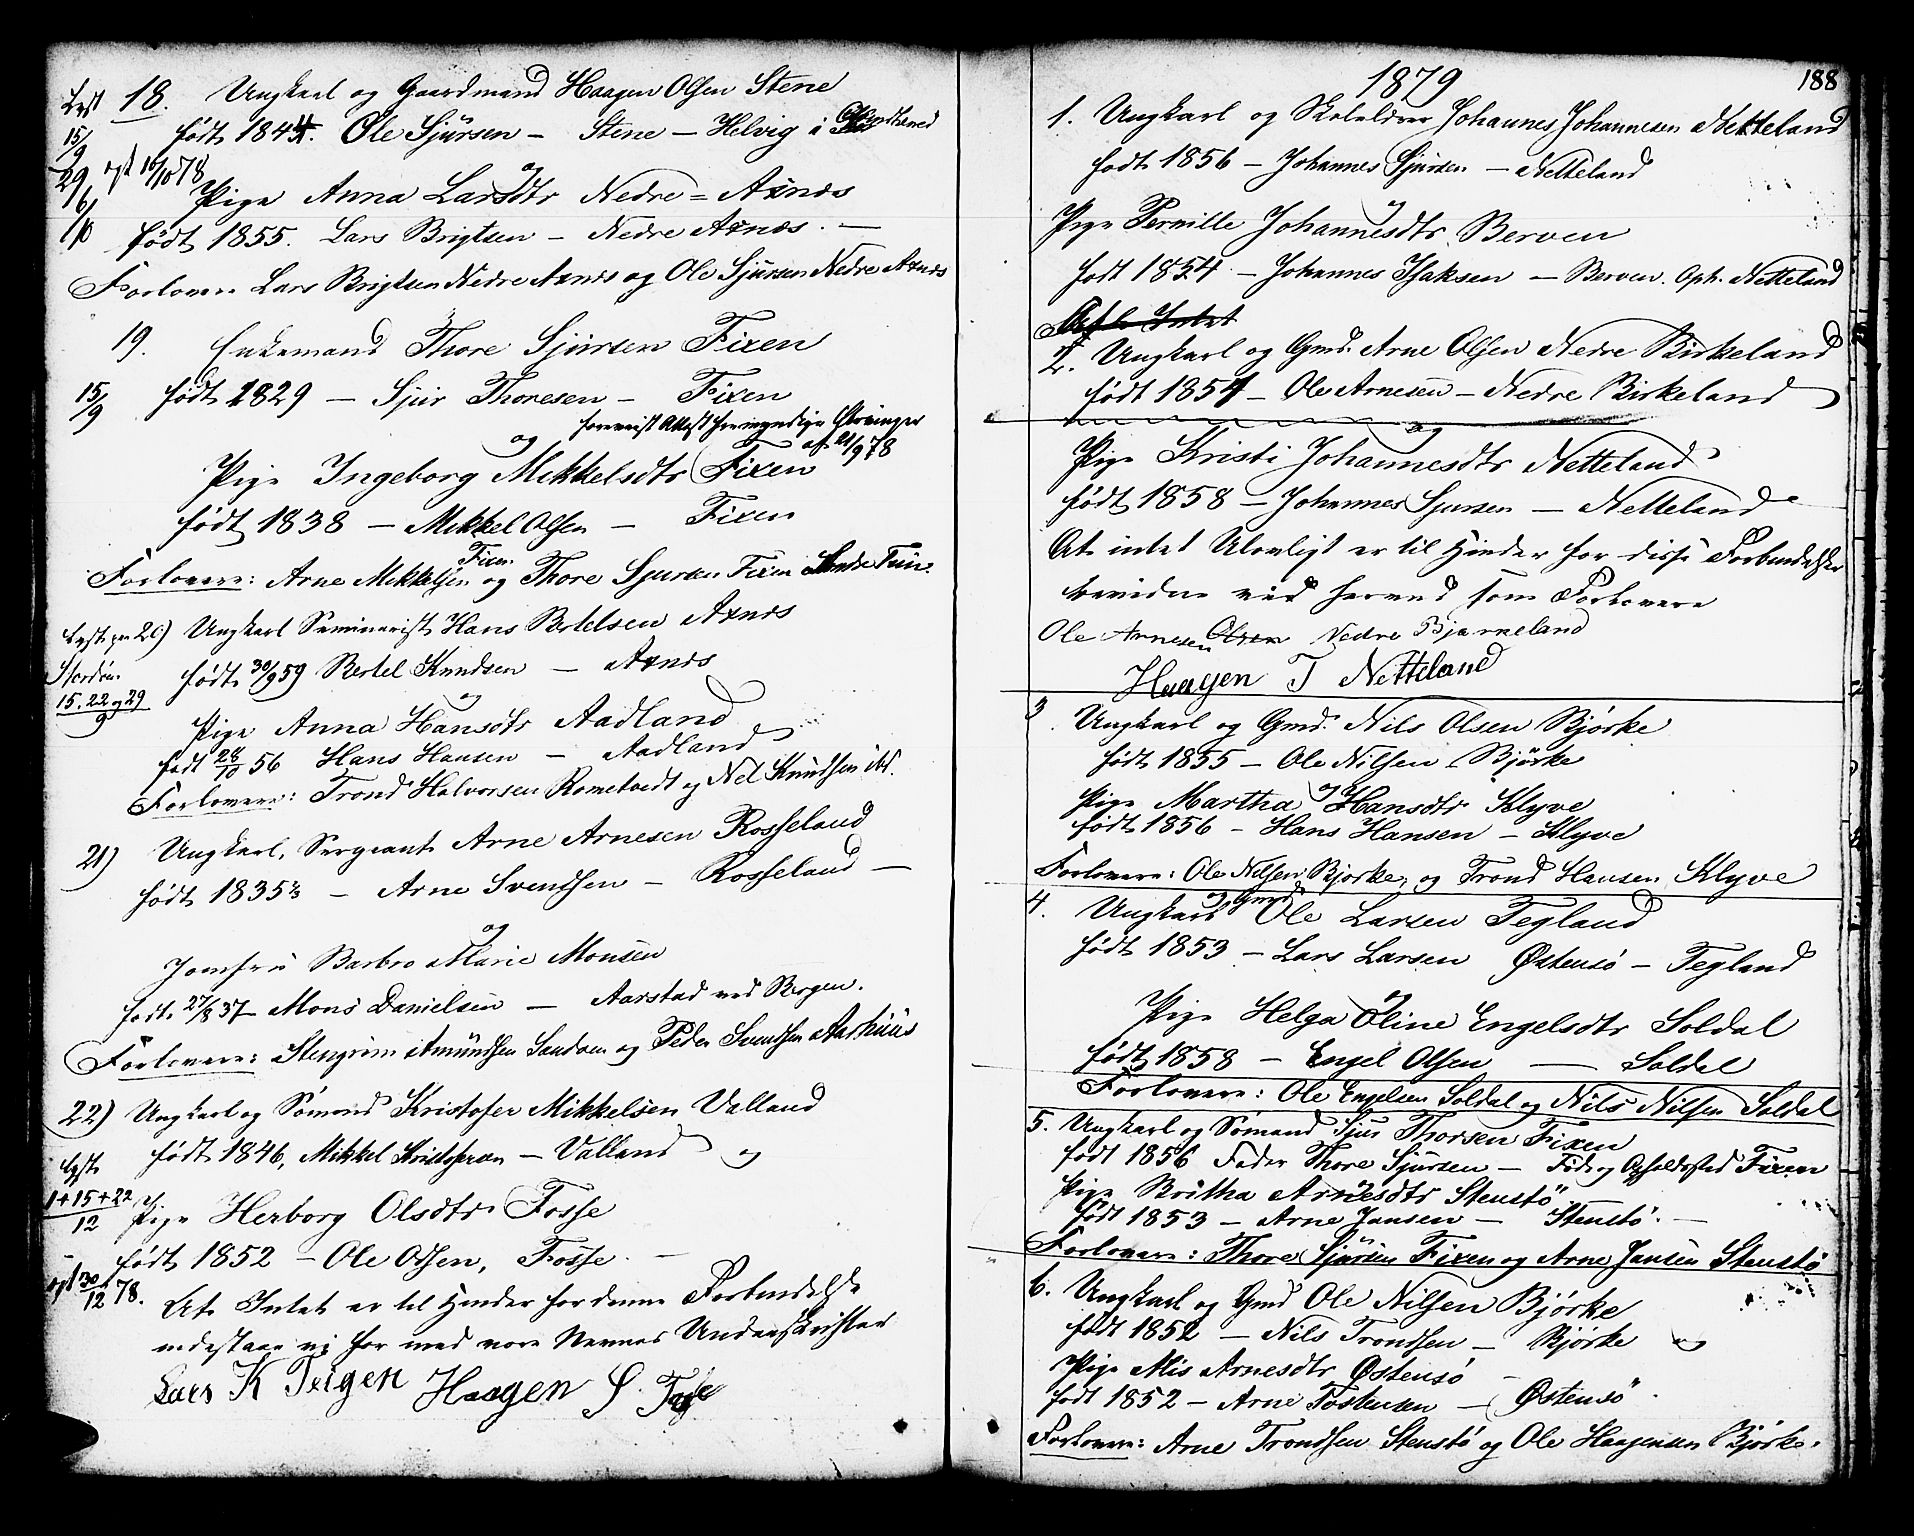 18. Ungkarl og Gaardmand Haagen Olsen Stene
Lyst
født 1844. Ole Sjursen – Stene – Helvig i
15/9
29
6/10
ogt 16/10 78
og
Pige Anna Larsdtr Nedre-Axnæs
født 1855. Lars Brigtsen – Nedre Axnæs. –
Forlovere Lars Brigtsen Nedre Axnæs og Ole Sjursen Nedre Axnæs
19. Enkemand Thore Sjursen Fixen
15/9
født 1829 – Sjur Thoresen – Fixen
foreviist Attest
af 21/9 78
og
Pige Ingeborg Mikkelsdtr Fixen
født 1838 – Mikkel Olsen – Fixen
Forlovere: Arne Mikkelsen Fixen og Thore Sjursen Fixen
20) Ungkarl Seminarist Hans Bertelsen Axnæs
Lyst paa Stordøen
15. 22 og 29/9
født 30/9 59 Bertel Knudsen – Axnæs
og
Pige Anna Hansdtr Aadland
født 28/10 56 Hans Hansen – Aadland
Forlovere: Trond Halvorsen Rometvedt og Nel Knudsen ibd.
21) Ungkarl, Sergeant Arne Arnesen Rosseland
født 1835 2/3 – Arne Svendsen – Rosseland –
og
Jomfru Barbro Marie Monsen
født 27/8 37 – Mons Danielsen – Aarstad ved Bergen.
Forlovere: Steengrim Amundsen Sandven og Peder Svendsen Aarhuus
22) Ungkarl og Sømand Kristofer Mikkelsen Valland
født 1846, Mikkel Kristofersen – Valland og
Lyst
1+15+22/12
Pige Herborg Olsdtr Fosse
født 1852 – Ole Olsen, Fosse. –
ogt 30/12 78.
At Intet er til Hinder for denne Forbindelse
indestaae vi for med vore Navnes Underskrifter
Lars K Teigen Haagen S. Fosse
1879
188
1. Ungkarl og Skolelærer Johannes Johannesen Netteland
født 1856 – Johannes Sjursen – Netteland
og
Pige Pernille Johannesdtr Berven
født 1854 – Johannes Isaksen – Berven. Oph. Netteland
At Intet
2. Ungkarl og Gmd. Arne Olsen Nedre Birkeland
født 1854 – Ole Arnesen – Nedre Birkeland
og
Pige Kristi Johannesdtr Netteland
født 1858 – Johannes Sjursen – Netteland
At intet Ulovligt er til Hinder for disse Forbindelser
bevidne vid herved som Forlovere
Ole Arnesen Olsen Nedre Bjørneland
Haagen T Netteland
3. Ungkarl og Gmd. Nils Olsen Bjørke
født 1855 – Ole Nilsen Bjørke
og
Pige Martha Hansdtr Klyve
født 1856 – Hans Hansen – Klyve
Forlovere: Ole Nilsen Bjørke, og Trond Hansen Klyve
4. Ungkarl og Gmd Ole Larsen Tegland
født 1853 – Lars Larsen Østensö – Tegland
og
Pige Helga Oline Engelsdtr Soldal
født 1858 – Engel Olsen – Soldal
Forlovere: Ole Engelsen Soldal og Nils Nilsen Soldal
5. Ungkarl og Sømand Sjur Thorsen Fixen
født 1856 Fader Thore Sjursen – Føde og Opholdssted Fixen
Pige Britha Arnesdtr Stenstö
født 1853 – Arne Jansen – Stenstö. –
Forlovere: Thore Sjursen Fixen og Arne Jansen Stenstö
6. Ungkarl og Gmd Ole Nilsen Bjørke
født 1852 – Nils Trondsen – Bjørke og
Pige Mis Arnesdtr Østensö
født 1852 – Arne Tostensen – Østensö.
Forlovere: Arne Trondsen Stenstö og Ole Haagensen Bjørke.